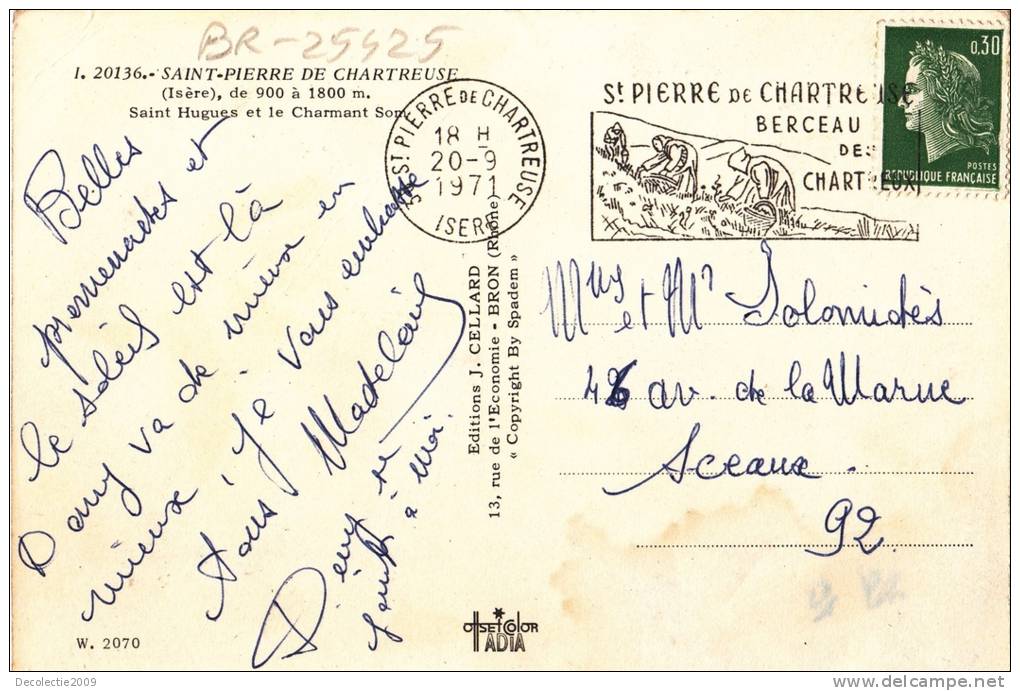 BR-25425
I. 20136.- SAINT-PIERRE DE CHARTREUSE
(Isère), de 900 à 1800 m.
Saint Hugues et le Charmant Som
Belles
promenades et
le soleil est là
Dany va de mieux en
mieux, je vous embrasse
tous Madeleine
Dény se
joint
à moi.
W. 2070
38 ST PIERRE DE CHARTREUSE
18 H
20-9
1971
ISERE
Editions J. CELLARD
13, rue de l'Economie - BRON (Rhône)
« Copyright By Spadem »
OffSEtCOlOR
IADIA
St PIERRE DE CHARTREUSE
BERCEAU
DES
CHARTREUX
0,30
POSTES
REPUBLIQUE FRANÇAISE
et Mr Solomidès
46 av. de la Marne
Sceaux.
92.
Decolectie2009
www.delcampe.net